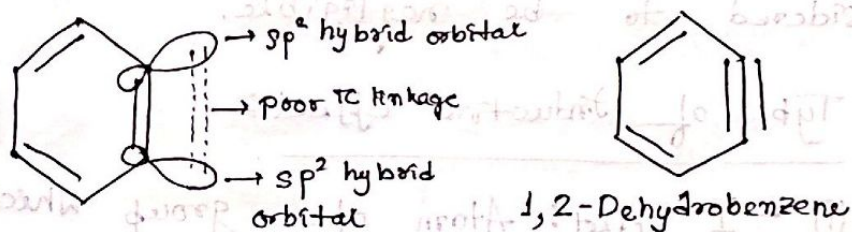 → sp² hybrid orbital
→ poor π linkage
→ sp² hybrid
orbital
1,2-Dehydrobenzene